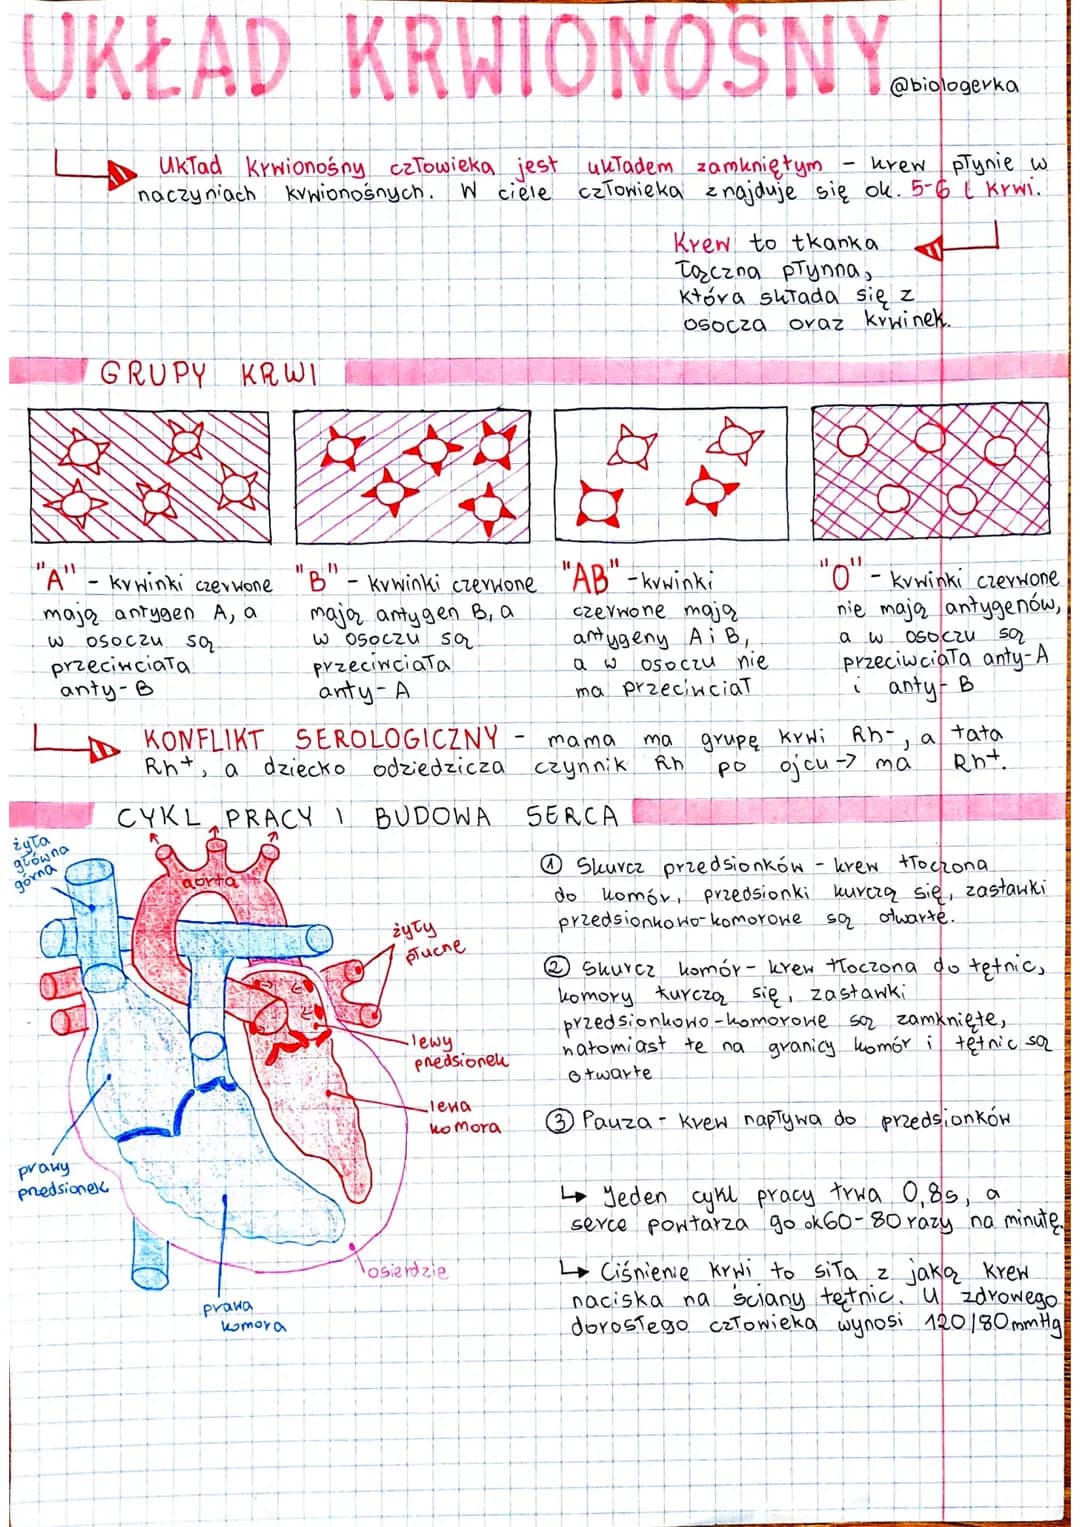 UKŁAD KRWIONOŚNY
@biologerka
Układ krwionośny człowieka jest układem zamkniętym - krew płynie w
naczyniach krwionośnych. W ciele człowieka znajduje się ok. 5-6 l krwi.
Krew to tkanka
łączna płynna,
która składa się z
osocza oraz krwinek.
GRUPY KRWI
"A" - krwinki czerwone
mają antygen A, a
w osoczu są
przeciwciała
anty-B
"B" - krwinki czerwone
mają antygen B, a
w osoczu są
przeciwciała
anty-A
"AB" - krwinki
czerwone mają
antygeny A i B,
a w osoczu nie
ma przeciwciał
"0" - krwinki czerwone
nie mają antygenów,
a w osoczu są
przeciwciała anty-A
i anty-B
KONFLIKT SEROLOGICZNY - mama ma grupę krwi Rh-, a tata
Rh+, a dziecko odziedzicza czynnik Rh po ojcu -> ma Rh+.
CYKL PRACY I BUDOWA SERCA
żyła
główna
górna
aorta
żyły
płucne
lewy
przedsionek
lewa
komora
prawy
przedsionek
osierdzie
prawa
komora
① Skurcz przedsionków - krew tłoczona
do komór, przedsionki kurczą się, zastawki
przedsionkowo-komorowe są otwarte.
② Skurcz komór - krew tłoczona do tętnic,
komory kurczą się, zastawki
przedsionkowo-komorowe są zamknięte,
natomiast te na granicy komór i tętnic są
otwarte
③ Pauza - krew napływa do przedsionków
↳ Jeden cykl pracy trwa 0,8s, a
serce powtarza go ok 60-80 razy na minutę.
↳ Ciśnienie krwi to siła z jaką krew
naciska na ściany tętnic. U zdrowego
dorosłego człowieka wynosi 120/80 mmHg